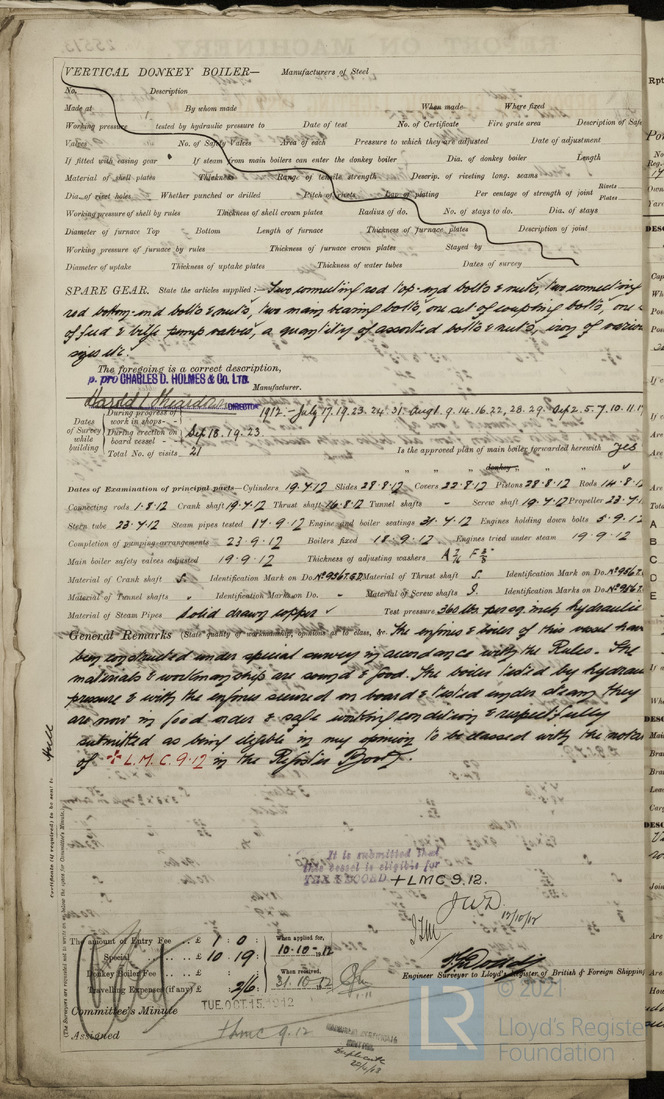 VERTICAL DONKEY BOILER— Manufacturers of Steel
No. Description
Made at By whom made When made Where fixed
Working pressure tested by hydraulic pressure to Date of test No. of Certificate Fire grate area Description of Safe
Valves No. of Safety Valves Area of each Pressure to which they are adjusted Date of adjustment
If fitted with easing gear If steam from main boilers can enter the donkey boiler Dia. of donkey boiler Length
Material of shell plates Thickness Range of tensile strength Descrip. of riveting long. seams
Dia. of rivet holes Whether punched or drilled Pitch of rivets Lap of plating Per centage of strength of joint Rivets Plates
Working pressure of shell by rules Thickness of shell crown plates Radius of do. No. of stays to do. Dia. of stays
Diameter of furnace Top Bottom Length of furnace Thickness of furnace plates Description of joint
Working pressure of furnace by rules Thickness of furnace crown plates Stayed by
Diameter of uptake Thickness of uptake plates Thickness of water tubes Dates of survey
SPARE GEAR. State the articles supplied:— Two connecting rod top-end bolts & nuts, two connecting
rod bottom-end bolts & nuts, two main bearing bolts, one set of coupling bolts, one s
of feed & bilge pump valves, a quantity of assorted bolts & nuts, iron of various
sizes etc.
The foregoing is a correct description,
p. pro CHARLES D. HOLMES & Co. LTD. Manufacturer.
DIRECTOR
Dates of Survey while building
During progress of work in shops - - 1912. - July 17. 19. 23. 24. 31. Aug 1. 9. 14. 16. 22. 28. 29. Sep 2. 5. 7. 10. 11. 1
During erection on board vessel - - Sep 18. 19. 23.
Total No. of visits 21
Is the approved plan of main boiler forwarded herewith yes
" " " donkey " " "
Dates of Examination of principal parts—Cylinders 19.7.12 Slides 28.8.12 Covers 22.8.12 Pistons 28.8.12 Rods 14.8.1
Connecting rods 1.8.12 Crank shaft 19.7.12 Thrust shaft 16.8.12 Tunnel shafts - Screw shaft 19.7.12 Propeller 23.7.1
Stern tube 23.7.12 Steam pipes tested 17.9.12 Engine and boiler seatings 31.7.12 Engines holding down bolts 5.9.12
Completion of pumping arrangements 23.9.12 Boilers fixed 18.9.12 Engines tried under steam 19.9.12
Main boiler safety valves adjusted 19.9.12 Thickness of adjusting washers
Material of Crank shaft S. Identification Mark on Do. Material of Thrust shaft S. Identification Mark on Do.
Material of Tunnel shafts Identification Marks on Do. Material of Screw shafts S. Identification Marks on Do.
Material of Steam Pipes Solid drawn copper Test pressure 360 lbs per sq. inch hydraulic
General Remarks (State quality of workmanship, opinions as to class, &c. The engines & boiler of this vessel have
been constructed under special survey in accordance with the Rules. The
materials & workmanship are sound & good. The boiler tested by hydraulic
pressure & with the engines secured on board & tested under steam they
are now in good order & safe working condition & respectfully
submitted as being eligible in my opinion to be classed with the notation
of + L.M.C. 9.12 in the Register Book.
Certificate (if required) to be sent to Hull
(The Surveyors are requested not to write on or below the space for Committee's Minute.)
It is submitted that
this vessel is eligible for
THE RECORD. + LMC 9.12.
JWD
12/10/12
The amount of Entry Fee .. £ 1 : 0 : When applied for,
Special .. £ 10 : 19 : 10.10.1912
Donkey Boiler Fee .. £ : : When received,
Travelling Expenses (if any) £ : 2/6 : 31.10.12
Engineer Surveyor to Lloyd's Register of British & Foreign Shipping
Committee's Minute TUE. OCT. 15. 1912
Assigned + Lmc 9.12
© 2021
LR Lloyd's Register
Foundation